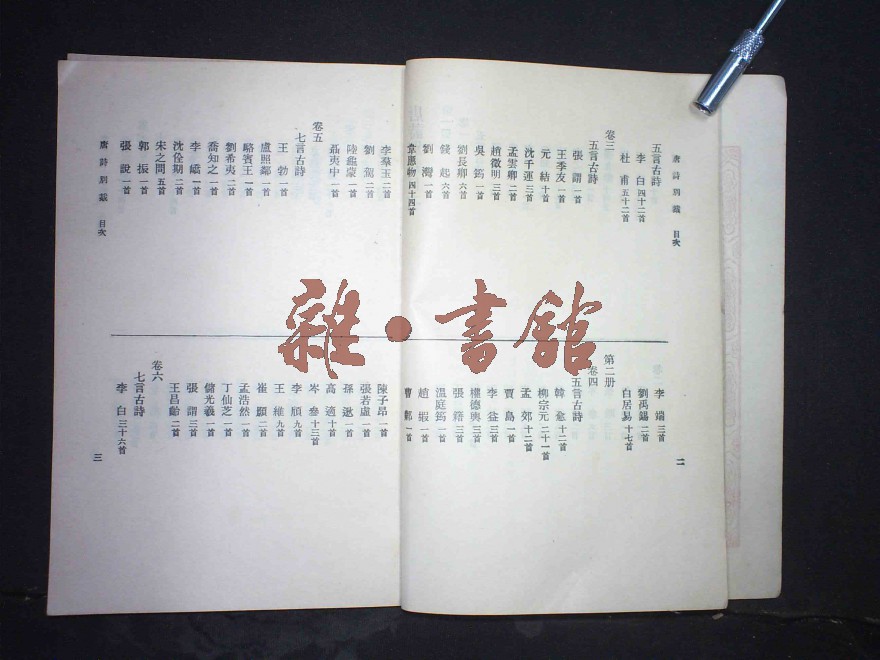 唐詩別裁 目次
五言古詩
李白四十二首
杜甫五十二首
卷三
五言古詩
張謂一首
王季友一首
元結十首
沈千運三首
孟雲卿二首
趙徵明三首
吳筠一首
劉長卿六首
錢起六首
劉灣一首
韋應物四十四首
李端三首
劉禹錫二首
白居易十七首
第二册
卷四
五言古詩
韓愈十二首
柳宗元二十一首
孟郊十二首
賈島一首
李益三首
權德輿三首
張籍三首
溫庭筠一首
趙嘏一首
曹鄴一首
二
李羣玉二首
劉駕二首
陸龜蒙一首
聶夷中一首
卷五
七言古詩
王勃一首
盧照鄰一首
駱賓王一首
劉希夷二首
喬知之一首
李嶠一首
沈佺期二首
宋之問五首
郭振一首
張說一首
陳子昂一首
張若虛一首
孫逖一首
高適十首
岑參十三首
李頎九首
王維九首
崔顥二首
孟浩然一首
丁仙芝一首
儲光羲一首
張謂三首
王昌齡二首
卷六
七言古詩
李白三十六首
唐詩別裁 目次
三
雜·書館